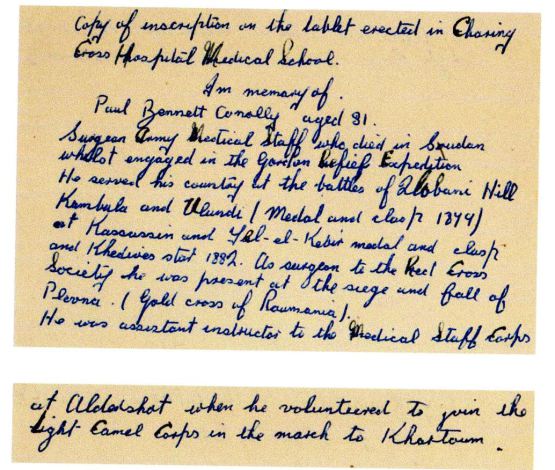 Copy of inscription on the tablet erected in Charing
Cross Hospital Medical School.
In memory of.
Paul Bennett Conolly aged 31.
Surgeon Army Medical Staff who died in Soudan
whilst engaged in the Gordon Relief Expedition
He served his country at the battles of Zlobani Hill
Kambula and Ulundi (Medal and clasp 1879)
at Kassassin and Tel-el-Kebir medal and clasp
and Khedives star 1882. As surgeon to the Red Cross
Society he was present at the siege and fall of
Plevna. (Gold cross of Roumania).
He was assistant instructor to the Medical Staff Corps
at Aldershot when he volunteered to join the
Light Camel Corps in the march to Khartoum.